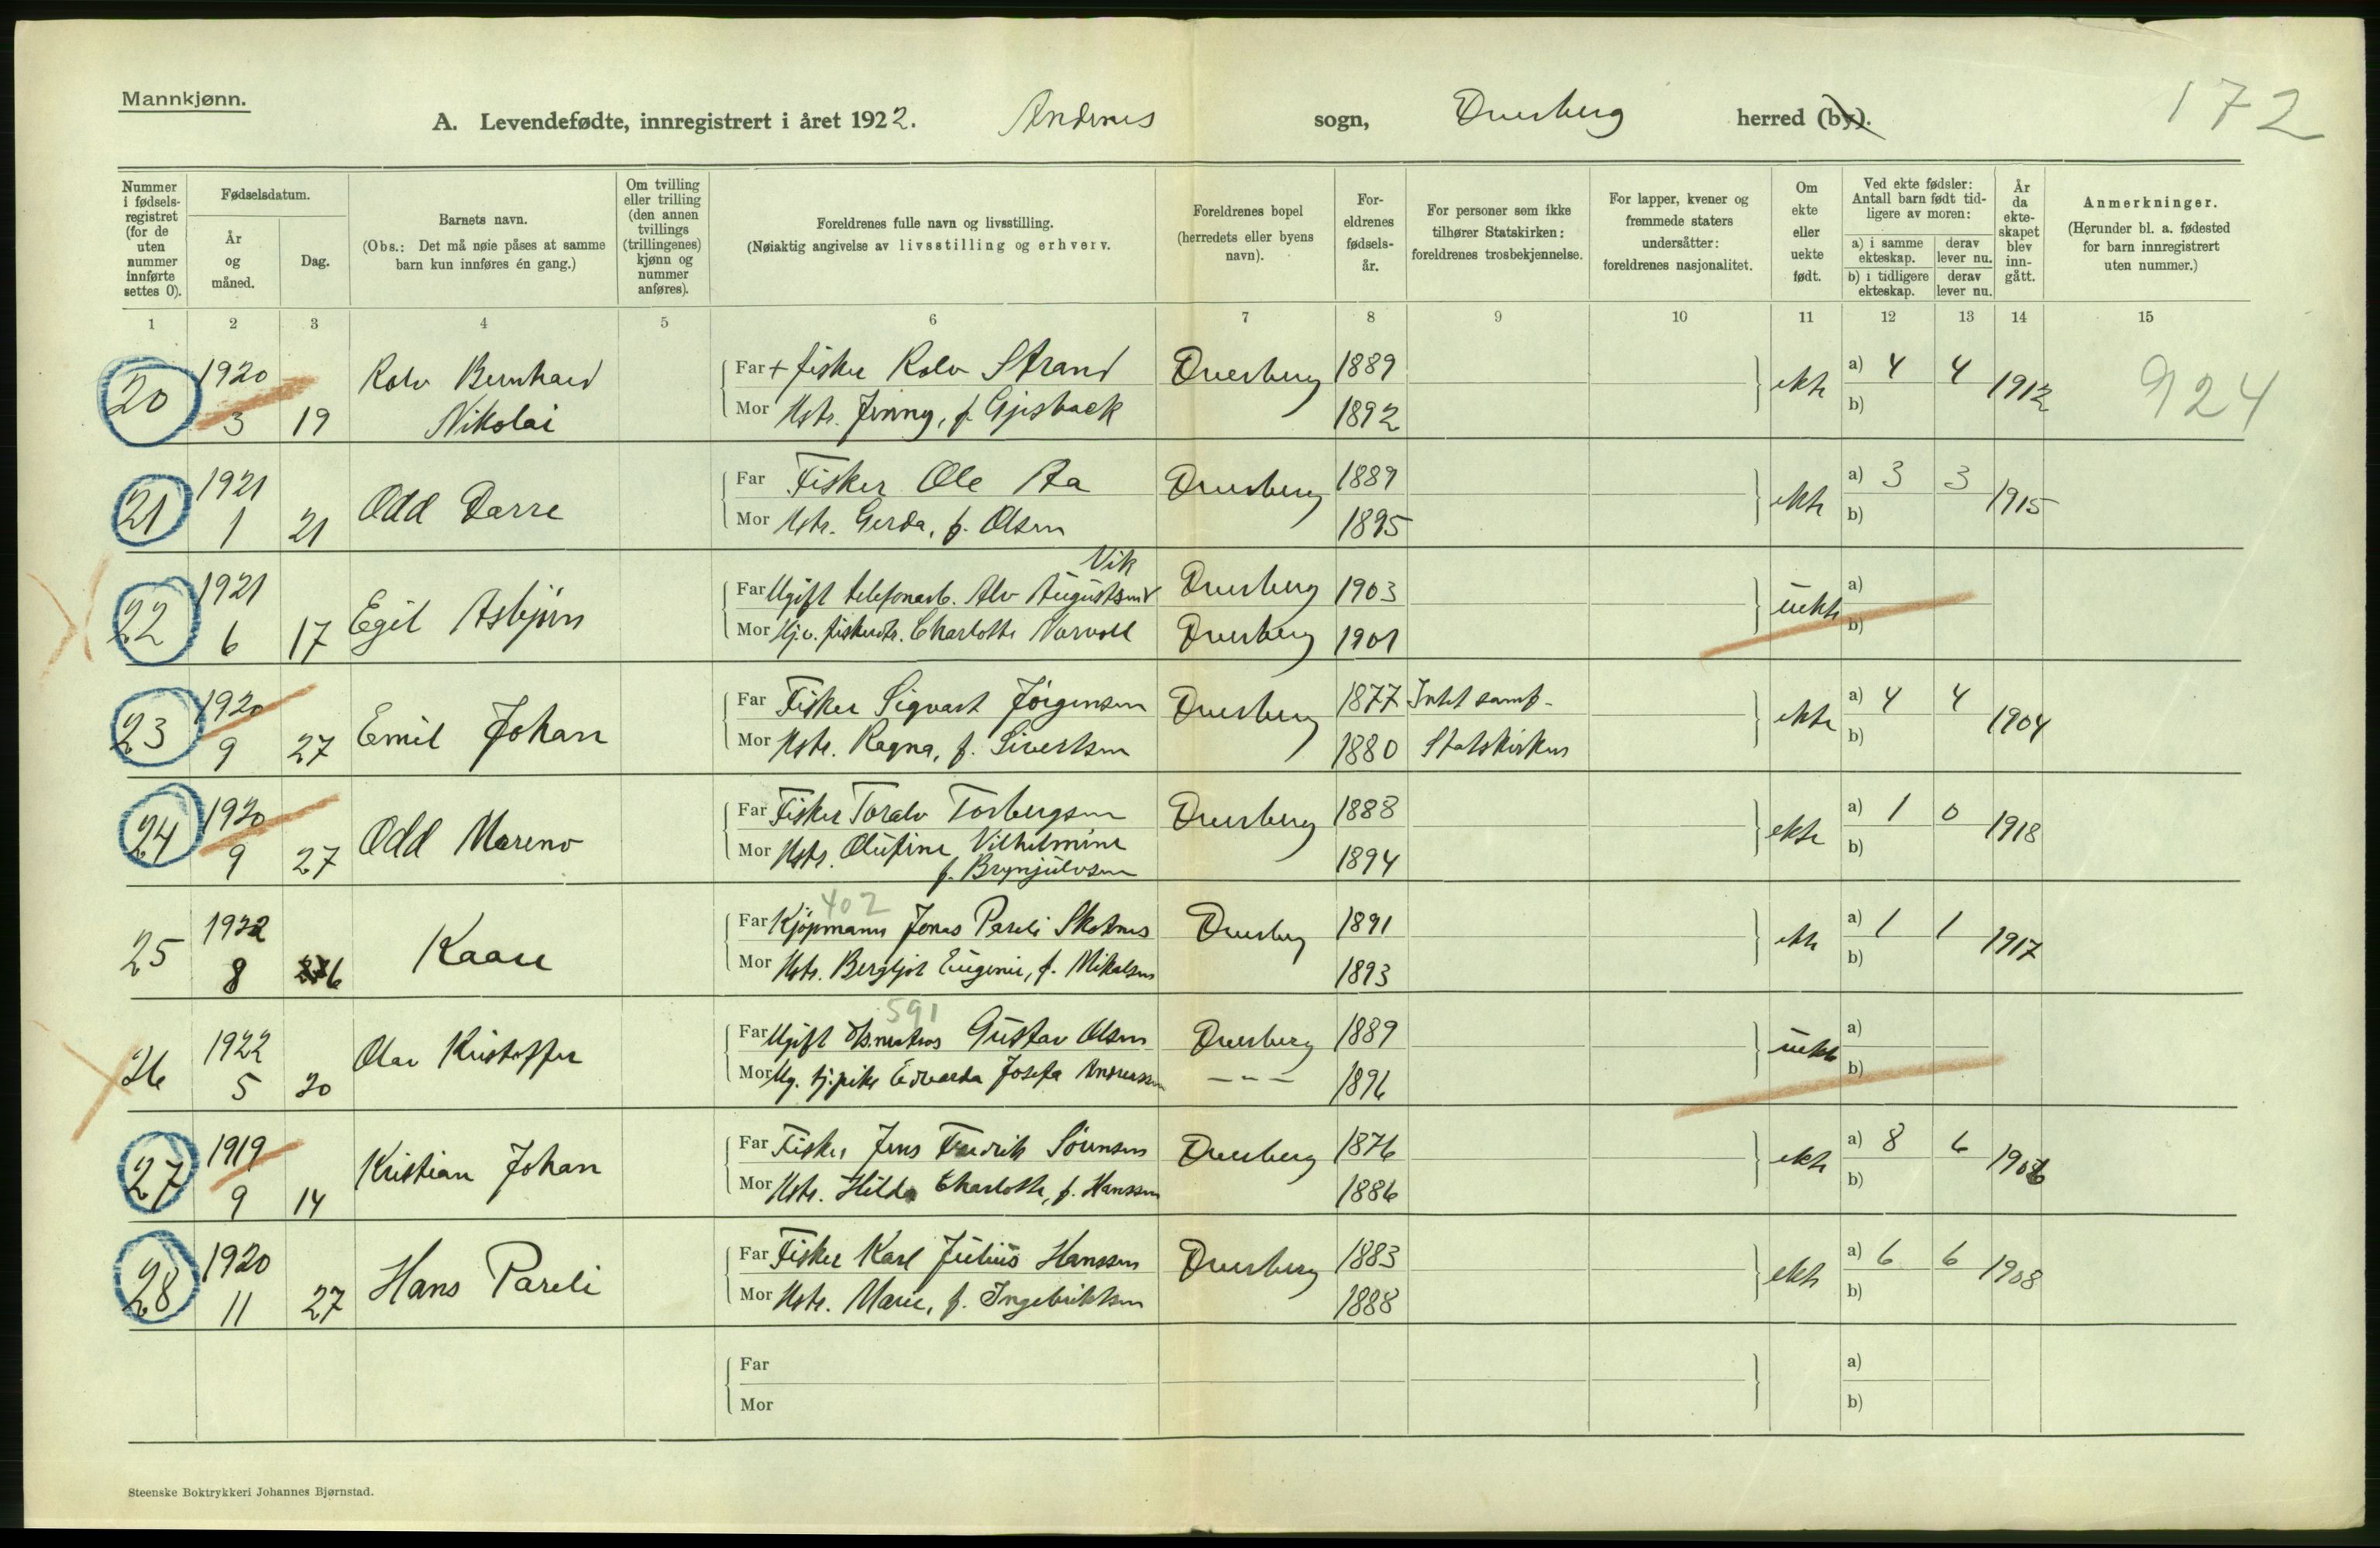 Mannkjønn.
A. Levendefødte, innregistrert i året 1922. Andenes sogn, Dverberg herred (by).
172
Nummer i fødselsregistret (for de uten nummer innførte settes 0).
Fødselsdatum.
År og måned.
Dag.
Barnets navn.
(Obs.: Det må nøie påses at samme barn kun innføres én gang.)
Om tvilling eller trilling (den annen tvillings (trillingenes) kjønn og nummer anføres).
Foreldrenes fulle navn og livsstilling.
(Nøiaktig angivelse av livsstilling og erhverv.
Foreldrenes bopel (herredets eller byens navn).
Foreldrenes fødselsår.
For personer som ikke tilhører Statskirken: foreldrenes trosbekjennelse.
For lapper, kvener og fremmede staters undersåtter: foreldrenes nasjonalitet.
Om ekte eller uekte født.
Ved ekte fødsler: Antall barn født tidligere av moren:
a) i samme ekteskap. derav lever nu.
b) i tidligere ekteskap. derav lever nu.
År da ekteskapet blev inngått.
Anmerkninger.
(Herunder bl. a. fødested for barn innregistrert uten nummer.)
1 2 3 4 5 6 7 8 9 10 11 12 13 14 15
20 1920 Rolv Bernhard Far + fisker Rolv Strand Dverberg 1889 ekte a) 4 4 1912 924
3 19 Nikolai Mor Hstr. Jenny, f. Gjesback 1892 b)
21 1921 Odd Darre Far Fisker Ole Aa Dverberg 1889 ekte a) 3 3 1915
1 21 Mor Hstr. Gerda, f. Olsen 1895 b)
Vik
22 1921 Egil Asbjørn Far Ugift telefonarb. Alv Augustsen Dverberg 1903 uekte a)
6 17 Mor Hj.v. fiskerdtr. Charlotte Norvoll Dverberg 1901 b)
23 1920 Emil Johan Far Fisker Sigvart Jørgensen Dverberg 1877 Intet samf. ekte a) 4 4 1904
9 27 Mor Hstr. Ragna, f. Sivertsen 1880 Statskirken b)
24 1920 Odd Mareno Far Fisker Toralv Torbergsen Dverberg 1888 ekte a) 1 0 1918
9 27 Mor Hstr. Olufine Vilhelmine 1894 b)
f. Brynjulvsen
402
25 1922 Kaare Far Kjøpmann Jonas Pareli Skotnes Dverberg 1891 ekte a) 1 1 1917
8 6 Mor Hstr. Bergljot Eugenie, f. Mikalsen 1893 b)
591
26 1922 Olav Kristoffer Far Ugift matros Gustav Olsen Dverberg 1889 uekte a)
5 20 Mor Ug. tj.pike Edvarda Josefa Andreassen — " — 1896 b)
27 1919 Kristian Johan Far Fisker Jens Fredrik Sörensen Dverberg 1876 ekte a) 8 6 1906
9 14 Mor Hstr. Hilda Charlotte, f. Hanssen 1886 b)
28 1920 Hans Pareli Far Fisker Karl Julius Hanssen Dverberg 1883 ekte a) 6 6 1908
11 27 Mor Hstr. Marie, f. Ingebriktsen 1888 b)
Far a)
Mor b)
Steenske Boktrykkeri Johannes Bjørnstad.